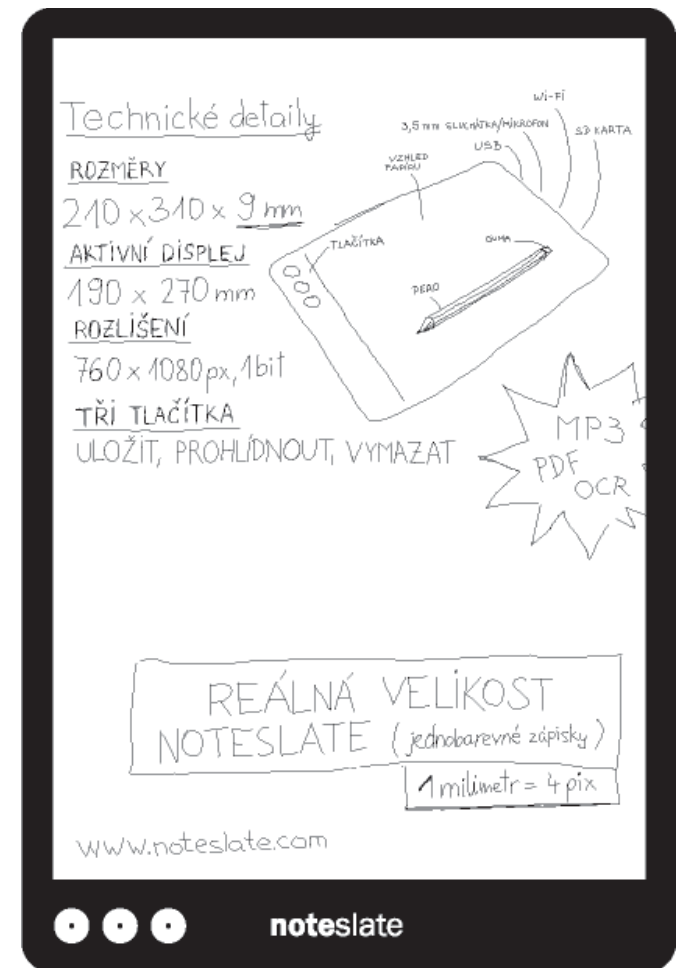 Technické detaily
ROZMĚRY
210 x 310 x 9 mm
AKTIVNÍ DISPLEJ
190 x 270 mm
ROZLIŠENÍ
760 x 1080 px, 1bit
TŘI TLAČÍTKA
ULOŽIT, PROHLÍDNOUT, VYMAZAT
Wi-Fi
3,5 mm SLUCHÁTKA/MIKROFON
SD KARTA
USB
VZHLED
PAPÍRU
TLAČÍTKA
GUMA
PERO
MP3
PDF
OCR
REÁLNÁ VELIKOST
NOTESLATE (jednobarevné zápisky)
1 milimetr = 4 pix
www.noteslate.com
noteslate